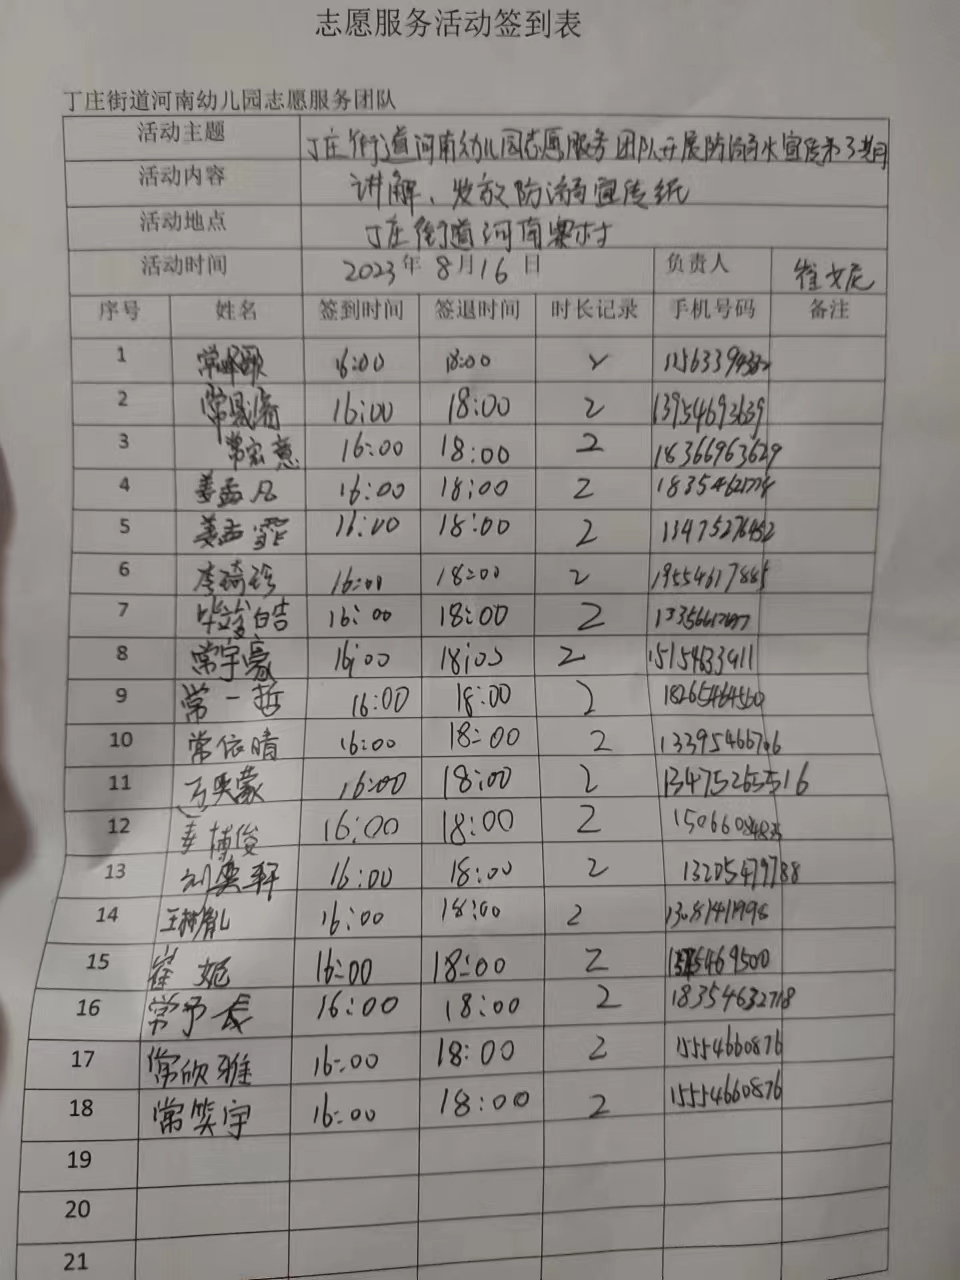 志愿服务活动签到表
丁庄街道河南幼儿园志愿服务团队
活动主题 丁庄街道河南幼儿园志愿服务团队开展防溺水宣传第3共同
活动内容 讲解、发放防溺宣传纸
活动地点 丁庄街道河南寨村
活动时间 2023年8月16日 负责人 崔
序号 姓名 签到时间 签退时间 时长记录 手机号码 备注
1 常 16:00 18:00 2
2 常 16:00 18:00 2 13954693639
3 常宏意 16:00 18:00 2 18366963629
4 姜孟凡 16:00 18:00 2
5 姜孟霏 16:00 18:00 2 13475276452
6 李琦珍 16:00 18:00 2 19554617885
7 皓 16:00 18:00 2
8 常宇豪 16:00 18:00 2 15154633911
9 常一哲 16:00 18:00 2 18265464560
10 常依晴 16:00 18:00 2 13395466706
11 奕蒙 16:00 18:00 2 13475265516
12 姜博俊 16:00 18:00 2
13 刘奕轩 16:00 18:00 2 13205479788
14 王 16:00 18:00 2
15 崔妮 16:00 18:00 2
16 常予辰 16:00 18:00 2 18354632718
17 常欣雅 16:00 18:00 2 15554660876
18 常笑宇 16:00 18:00 2 15554660876
19
20
21